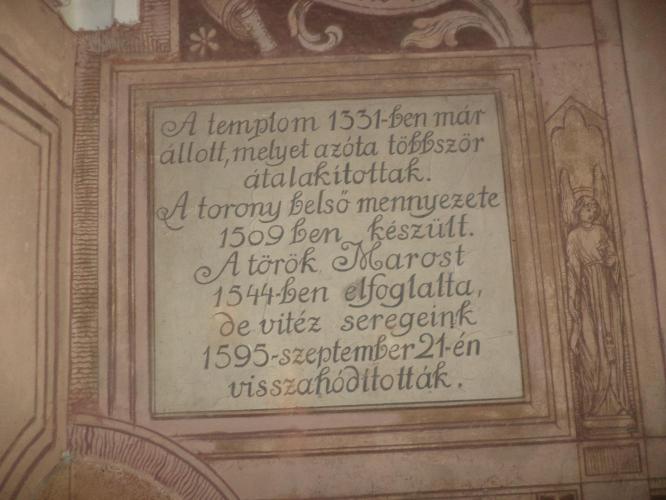 A templom 1331-ben már
állott, melyet azóta többször
átalakítottak.
A torony belső mennyezete
1509 ben készült.
A török Marost
1544-ben elfoglalta,
de vitéz seregeink
1595-szeptember 21-én
visszahódították.